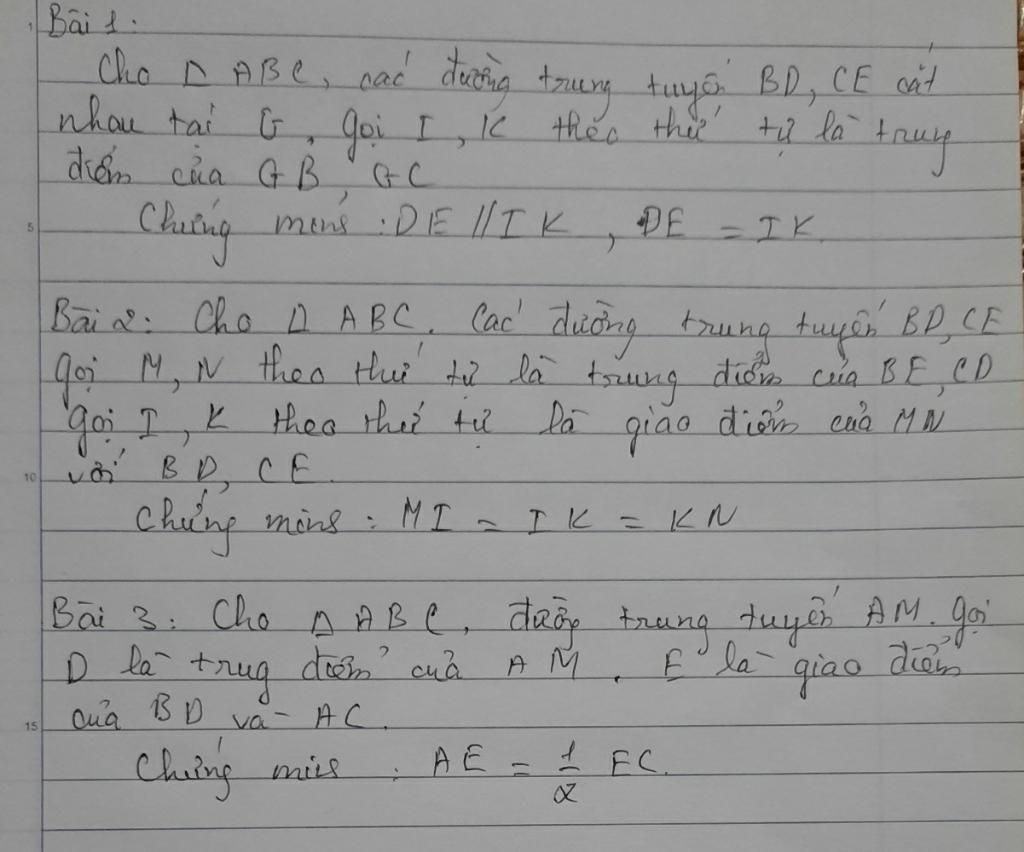 Bài 1:
Cho Δ ABC, các đường trung tuyến BD, CE cắt
nhau tại G, gọi I, K theo thứ tự là trung
điểm của GB, GC
Chứng minh: DE // IK, DE = IK.
5
Bài 2: Cho Δ ABC. Các đường trung tuyến BD, CE
gọi M, N theo thứ tự là trung điểm của BE, CD
gọi I, K theo thứ tự là giao điểm của MN
với BD, CE.
10
Chứng minh: MI = IK = KN
Bài 3: Cho Δ ABC, đường trung tuyến AM. Gọi
D là trug điểm của AM. E là giao điểm
của BD và AC.
15
Chứng minh: AE = 1/2 EC.